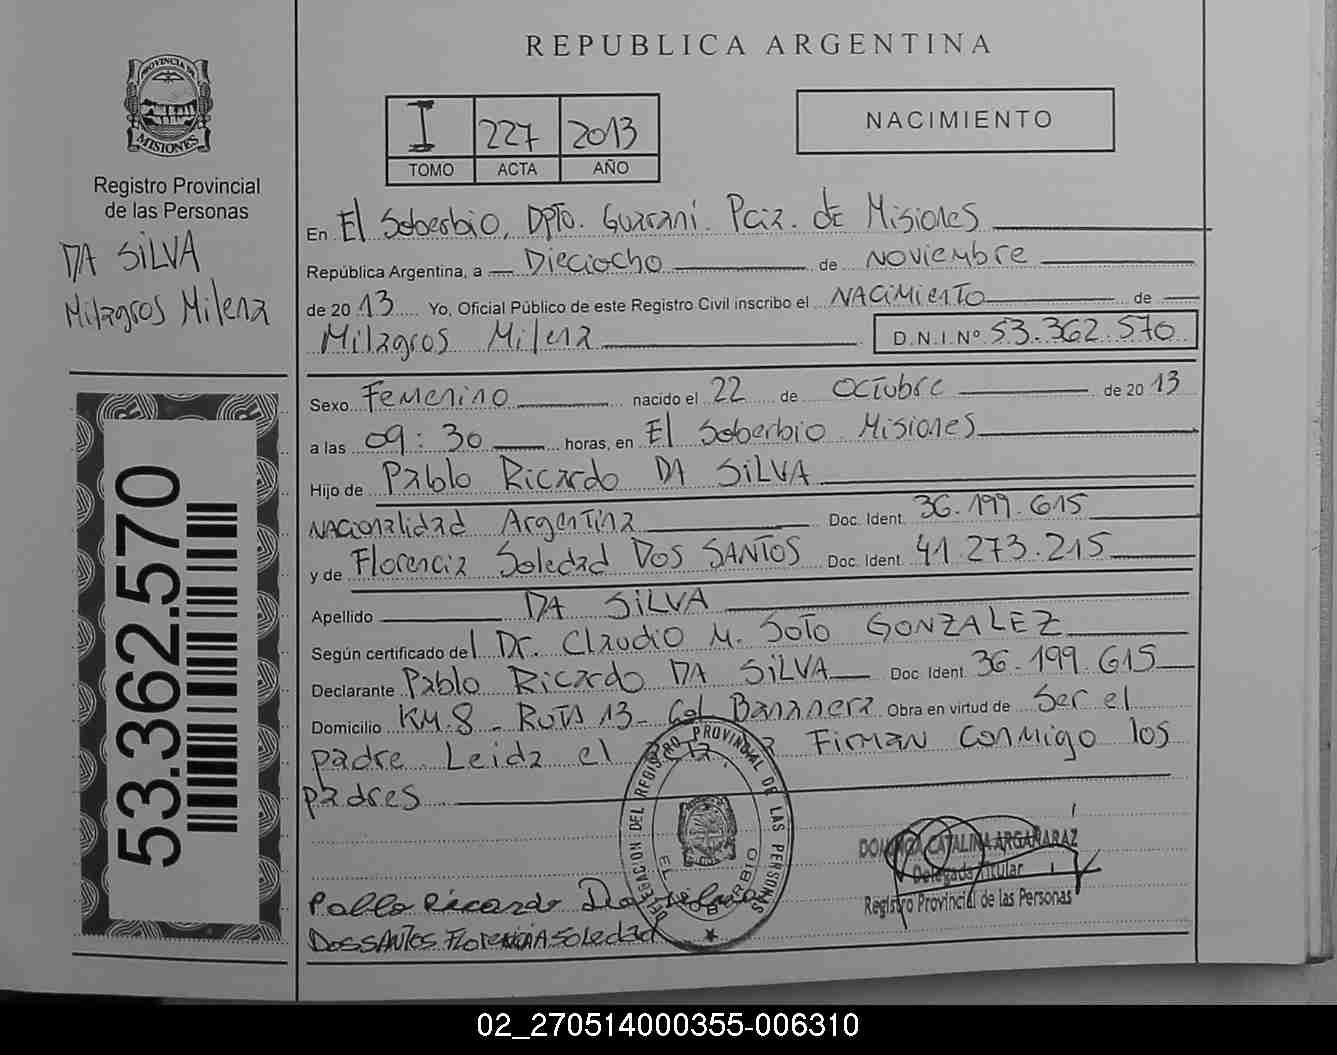 REPUBLICA ARGENTINA
PROVINCIA DE
MISIONES
Registro Provincial
de las Personas
DA SILVA
Milagros Milena
53.362.570
I 227 2013
TOMO ACTA AÑO
NACIMIENTO
En El Soberbio, Dpto. Guaraní. Pcia. de Misiones
República Argentina, a Dieciocho de Noviembre
de 2013 Yo, Oficial Público de este Registro Civil inscribo el NACIMIENTO de
Milagros Milena D.N.I. Nº 53.362.570
Sexo Femenino nacido el 22 de Octubre de 2013
a las 09:30 horas, en El Soberbio Misiones
Hijo de Pablo Ricardo DA SILVA
Nacionalidad Argentina Doc. Ident. 36.199.615
y de Florencia Soledad DOS SANTOS Doc. Ident. 41.273.215
Apellido DA SILVA
Según certificado del Dr. Claudio M. Soto GONZALEZ
Declarante Pablo Ricardo DA SILVA Doc Ident. 36.199.615
Domicilio KM 8 - RUTA 13 - Col Bananera Obra en virtud de Ser el
padre Leida el Firman conmigo los
padres
DELEGACION DEL REGISTRO PROVINCIAL DE LAS PERSONAS
EL SOBERBIO
DOMINGA CATALINA ARGAÑARAZ
Delegada Titular
Registro Provincial de las Personas
Pablo Ricardo Da Silva
DOS SANTOS FLORENCIA Soledad
02_270514000355-006310